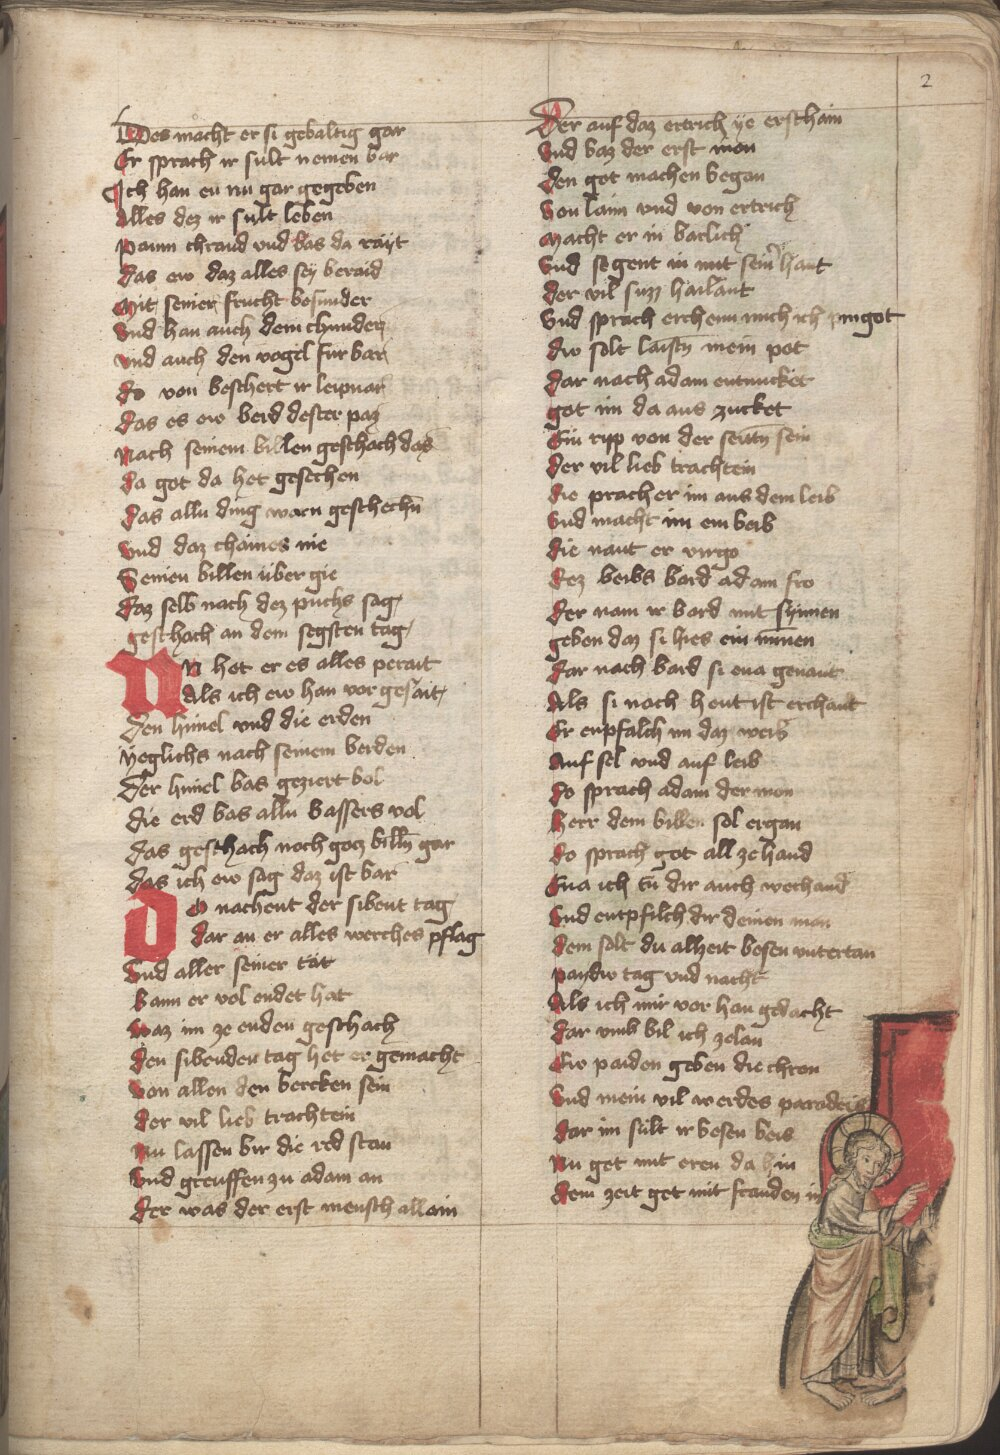 2
Des macht er si gebaltig gar
Er sprach ir sult nemen bar
Ich han eu nu gar gegeben
Alles dez ir sult leben
Paum chraud vnd bas da rayt
das ew daz alles sey beraid
Mit seiner frucht besunder
Vnd han auch dem chunder
Vnd auch den vogel fur bar
do von beschert ir leipnar
das es ew berd dester paz
Nach seinem billen geschach das
da got da het gesechen
das allu ding warn geschechn̄
Vnd daz chaines nie
Seinen billen über gie
daz selb nach dez puchs sag
geschach an dem segsten tag
NV het er es alles perait
Als ich ew han vor gesait
Den himel vnd die erden
Yeglichs nach seinem berden
Der himel bas geziert bol
die erd bas allu bassers vol
das geschach noch gocz billn̄ gar
das ich ew sag daz ist bar
DO nachent der sibent tag
dar an er alles werches pflag
Vnd aller seiner tät
bann er vol endet hat
Waz im ze enden geschach
den sibenden tag het er gemacht
Von allen den bercken sein
der vil lieb trachtein
Nu lassen bir die red stan
Vnd greuffen zu adam an
der was der erst mensch allain
Der auf daz ertrich ye erschain
Vnd baz der erst man
den got machen began
Von laim vnd von ertrich
Macht er in barlich
Vnd segent in mit sein̄ hant
der vil suzz hailant
Vnd sprach erchenn mich ich pin got
du solt laistn mein pot
dar nach adam entnucket
got im da aus zucket
Ein ripp von der seitn̄ sein
der vil lieb trachtein
die prach er im aus dem leib
Vnd macht im ein beib
die nant er virgo
dez beibs bard adam fro
der nam ir bard mit synnen
geben daz si hies ein minnen
dar nach bard si eua genant
Als si noch heut ist erchant
Er enpfalch im daz weib
Auf sel vnd auf leib
do sprach adam der man
herr dem billen sol ergan
do sprach got all ze hand
Eua ich tü dir auch wechand
Vnd entpfilch dir deinen man
dem solt du alzeit besen vntertan
paydw tag vnd nacht
Als ich mir vor han gedacht
dar vmb bil ich zelan
Ew paiden geben die chron
Vnd mein vil werdes paradeis
dar im sült ir besen beis
Nu get mit eren da hin
dem zeit get mit frauden in